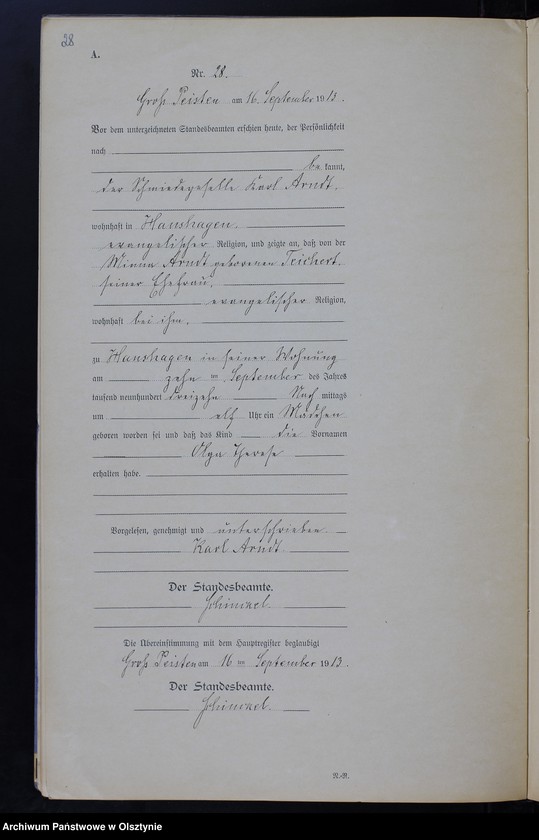 28
A.
Nr. 28.
Groß Peisten am 16. September 1913.
Vor dem unterzeichneten Standesbeamten erschien heute, der Persönlichkeit
nach
be kannt,
der Schmiedegeselle Karl Arndt,
wohnhaft in Hanshagen,
evangelischer Religion, und zeigte an, daß von der
Minna Arndt geborenen Teichert,
seiner Ehefrau,
evangelischer Religion,
wohnhaft bei ihm,
zu Hanshagen in seiner Wohnung
am zehn ten September des Jahres
tausend neunhundert dreizehn Nach mittags
um elf Uhr ein Mädchen
geboren worden sei und daß das Kind die Vornamen
Olga Therese
erhalten habe.
Vorgelesen, genehmigt und unterschrieben
Karl Arndt
Der Standesbeamte.
Die Übereinstimmung mit dem Hauptregister beglaubigt
Groß Peisten am 16 ten September 1913.
Der Standesbeamte.
N.-R.
Archiwum Państwowe w Olsztynie